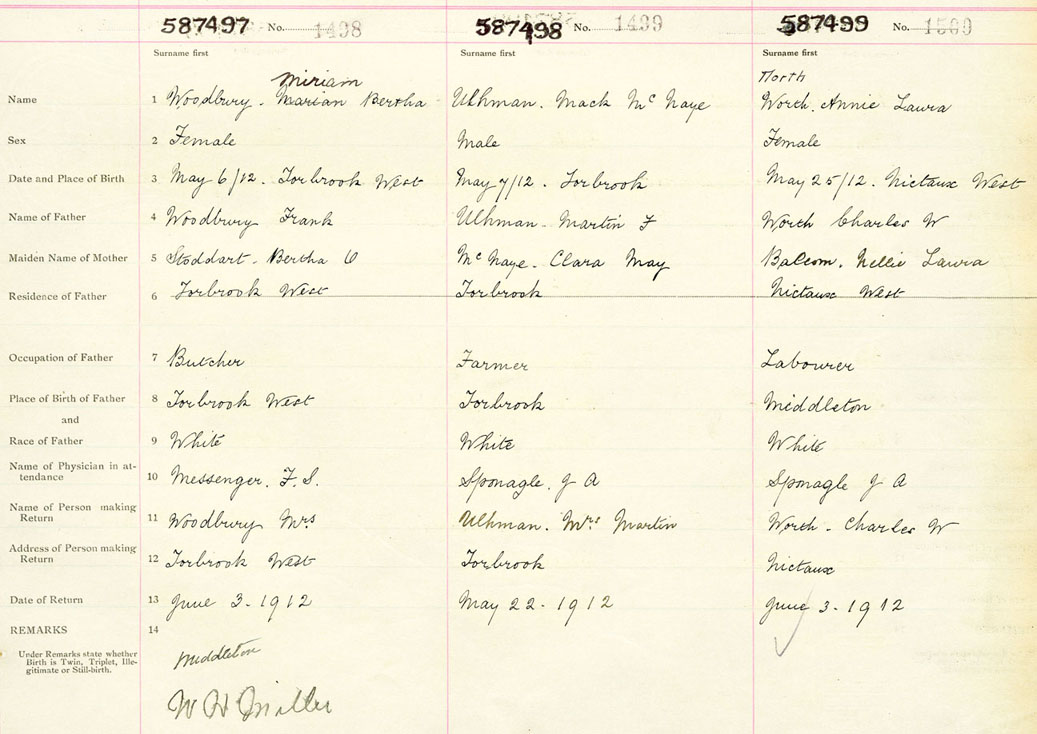 587497 No. 1498 587498 No. 1499 587499 No. 1500
Surname first Surname first Surname first
Miriam North
Name 1 Woodbury. Marian Bertha Ulhman. Mack McNaye Worth. Annie Laura
Sex 2 Female Male Female
Date and Place of Birth 3 May 6/12. Torbrook West May 7/12. Torbrook May 25/12. Nictaux West
Name of Father 4 Woodbury Frank Ulhman Martin F Worth Charles W
Maiden Name of Mother 5 Stoddart. Bertha McNaye. Clara May Balcom. Nellie Laura
Residence of Father 6 Torbrook West Torbrook Nictaux West
Occupation of Father 7 Butcher Farmer Labourer
Place of Birth of Father 8 Torbrook West Torbrook Middleton
and
Race of Father 9 White White White
Name of Physician in at-
tendance 10 Messenger. F. S. Sponagle. J A Sponagle J A
Name of Person making
Return 11 Woodbury Mrs Ulhman. Mrs Martin Worth. Charles W
Address of Person making
Return 12 Torbrook West Torbrook Nictaux
Date of Return 13 June 3. 1912 May 22. 1912 June 3. 1912
REMARKS 14
Under Remarks state whether
Birth is Twin, Triplet, Ille-
gitimate or Still-birth.
Middleton
W H Miller